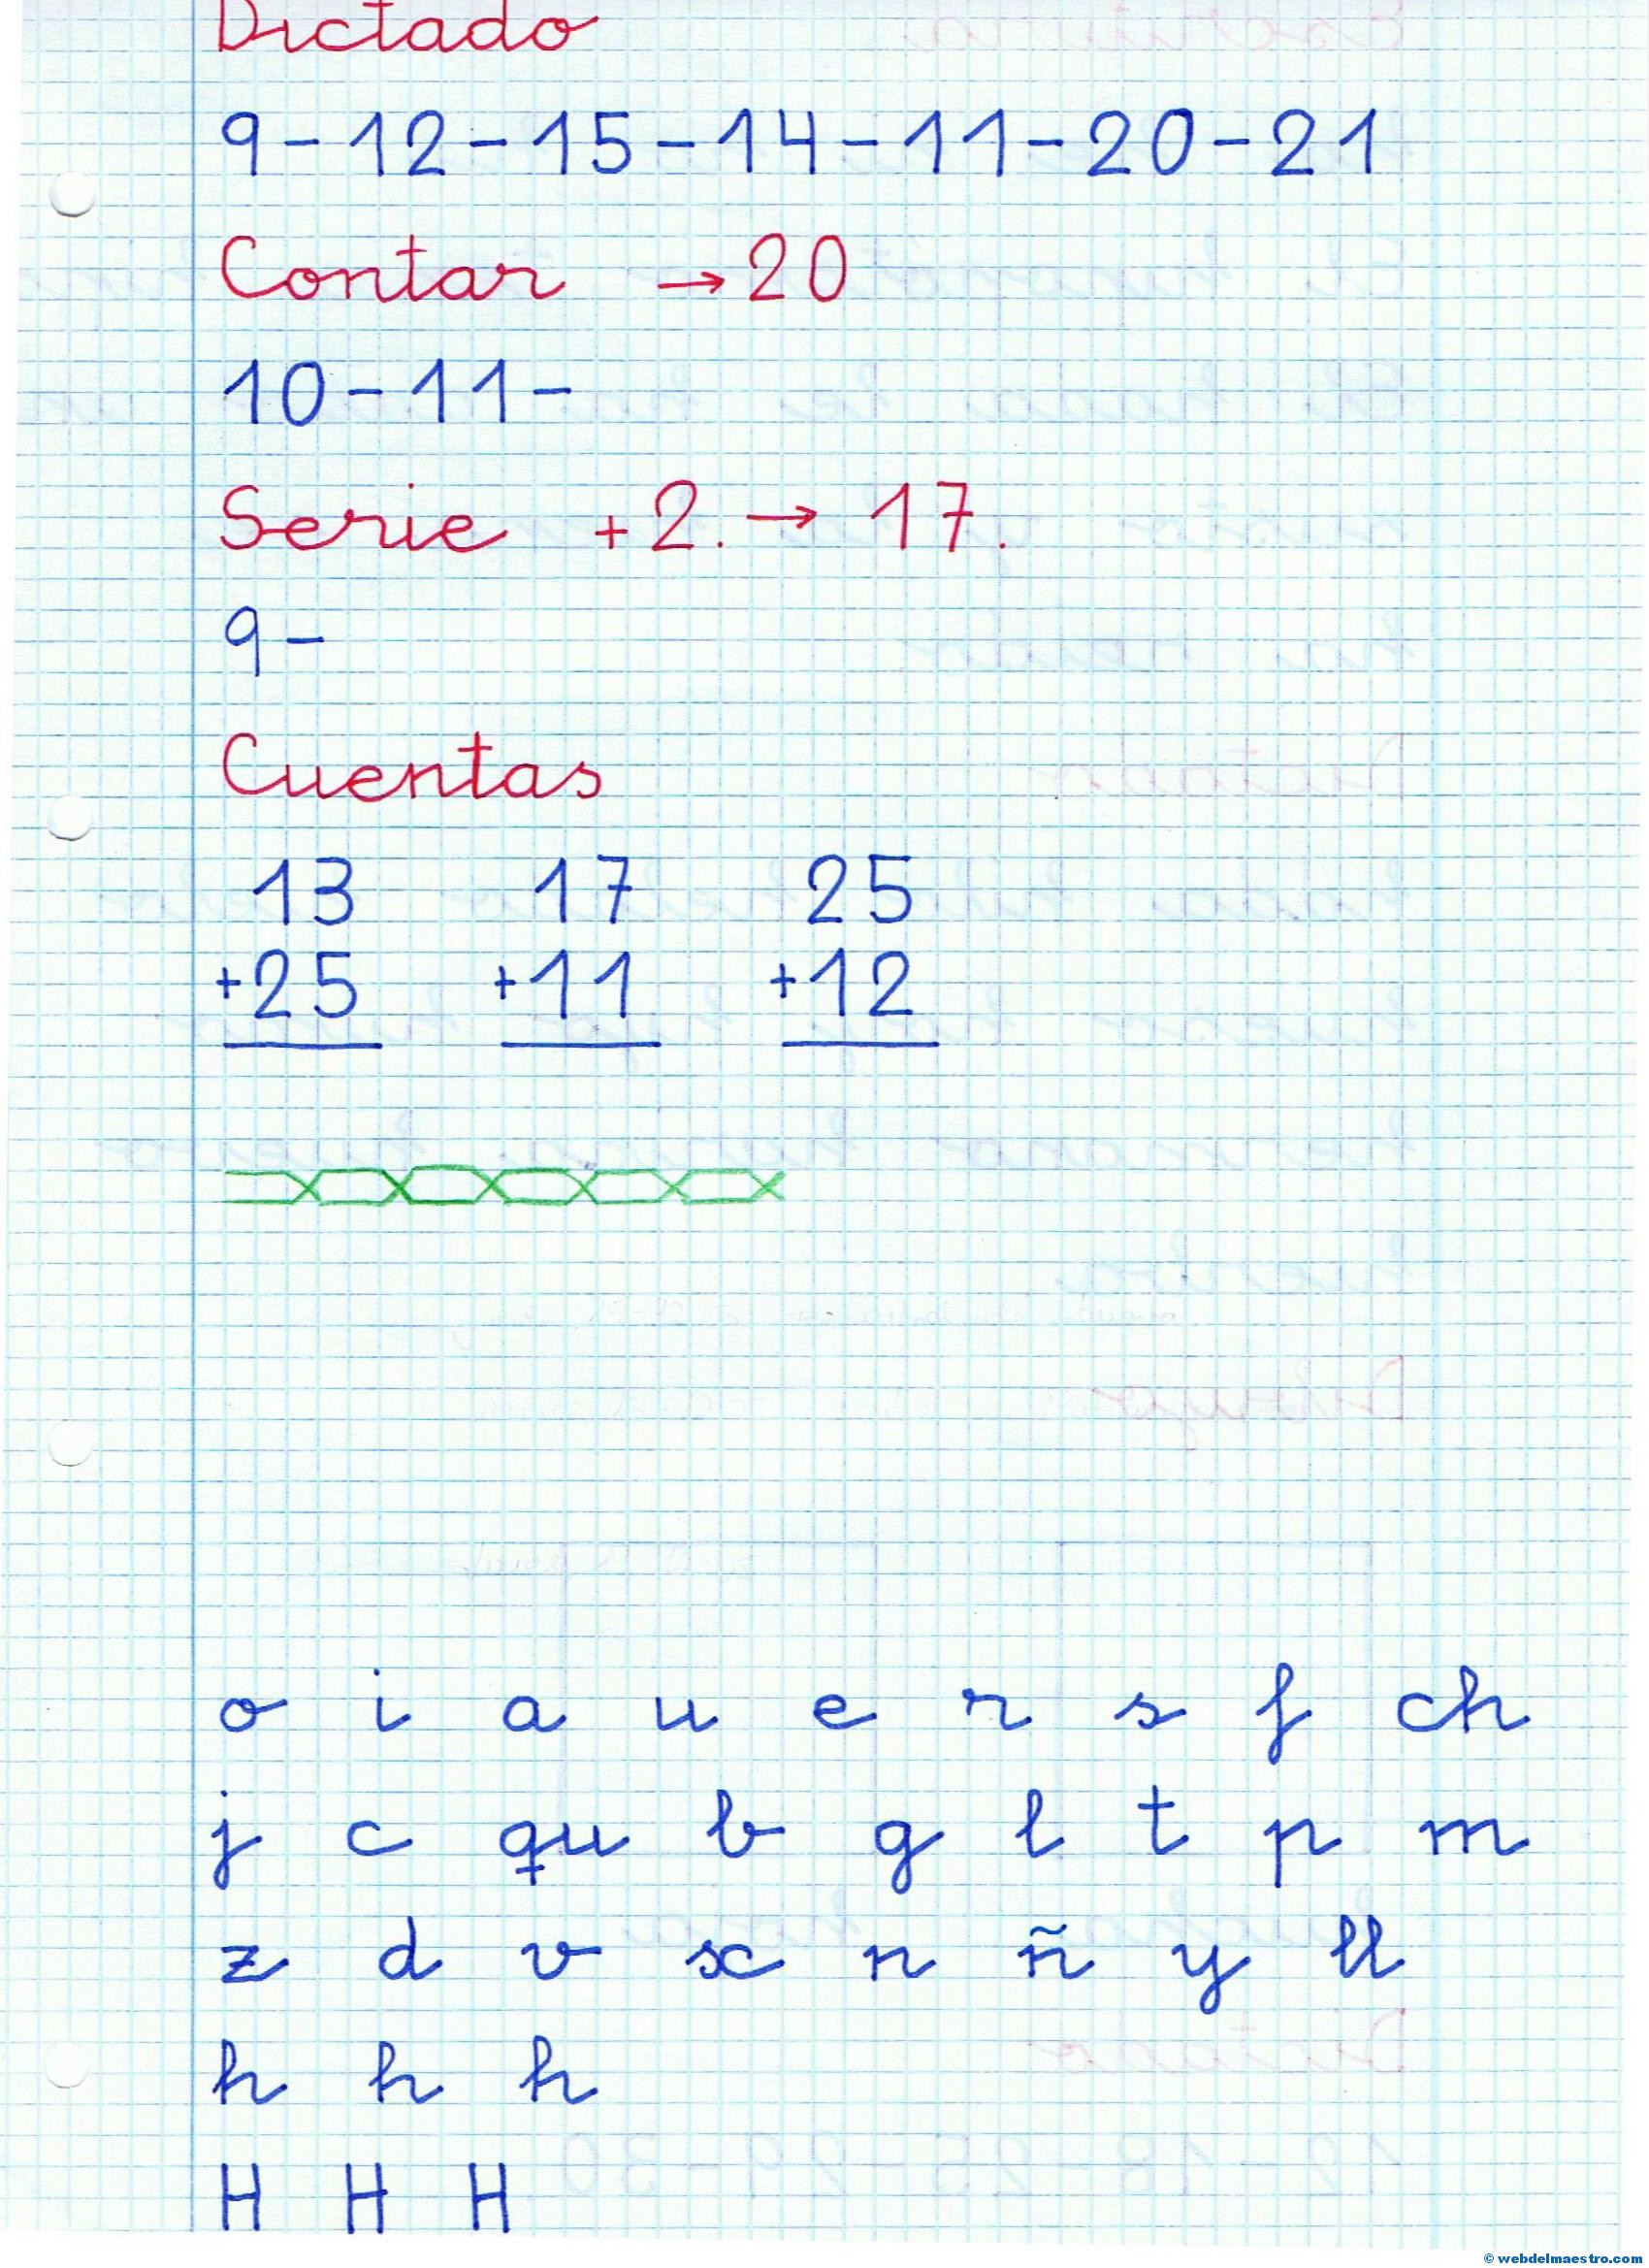 Dictado
9-12-15-14-11-20-21
Contar → 20
10-11-
Serie +2. → 17.
9-
Cuentas
13 17 25
+25 +11 +12
o i a u e r s f ch
j c qu b g l t p m
z d v x n ñ y ll
h h h
H H H
© webdelmaestro.com